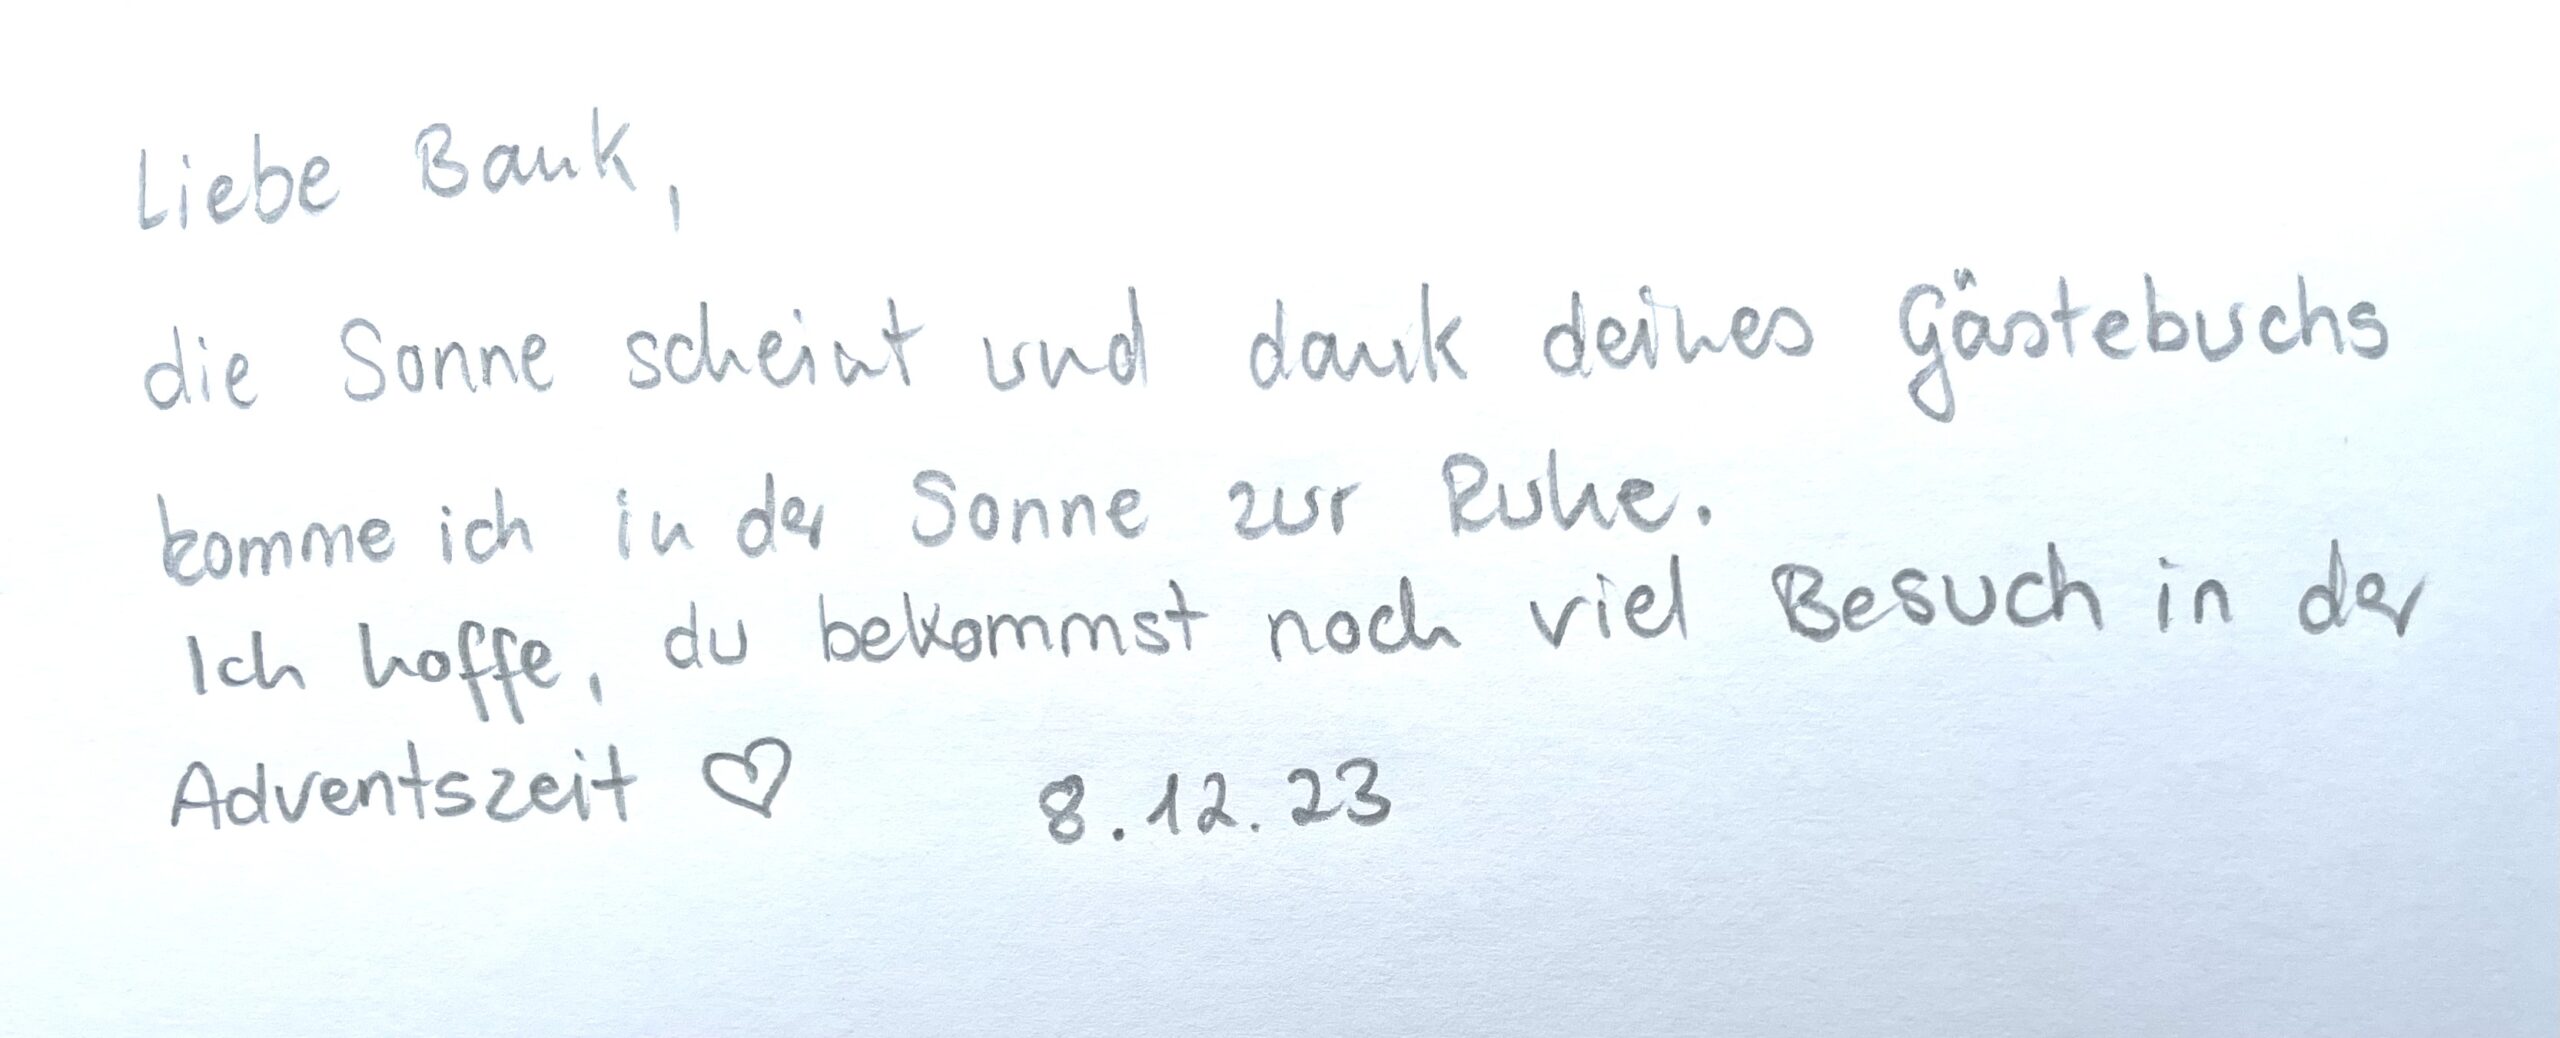 Liebe Bank,
die Sonne scheint und dank deines Gästebuchs
komme ich in der Sonne zur Ruhe.
Ich hoffe, du bekommst noch viel Besuch in der
Adventszeit ♡ 8.12.23